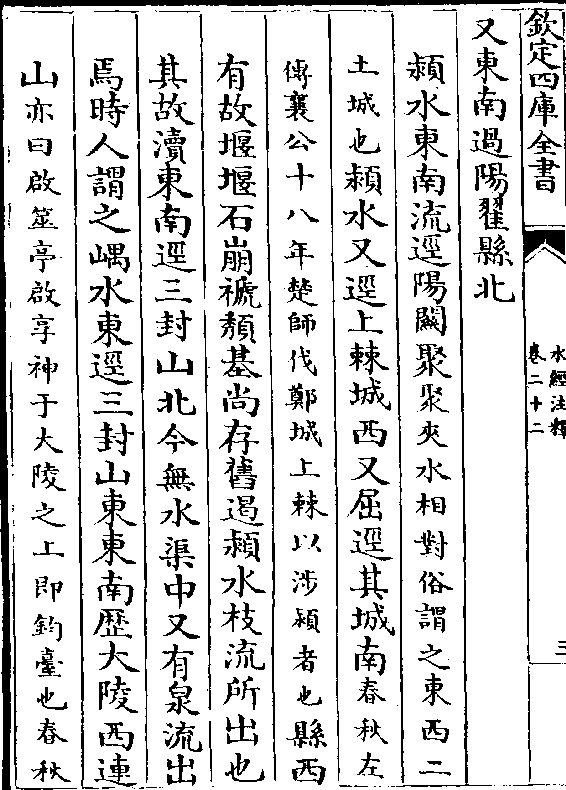 欽定四庫全書
水經注釋
卷二十二
三
又東南過陽翟縣北
潁水東南流逕陽關聚聚夾水相對俗謂之東西二
土城也潁水又逕上棘城西又屈逕其城南春秋左
傳襄公十八年楚師伐鄭城上棘以涉潁者也縣西
有故堰堰石崩褫頹基尚存舊遏潁水枝流所出也
其故瀆東南逕三封山北今無水渠中又有泉流出
焉時人謂之嵎水東逕三封山東東南歷大陵西連
山亦曰啟筮亭啟享神于大陵之上即鈞臺也春秋